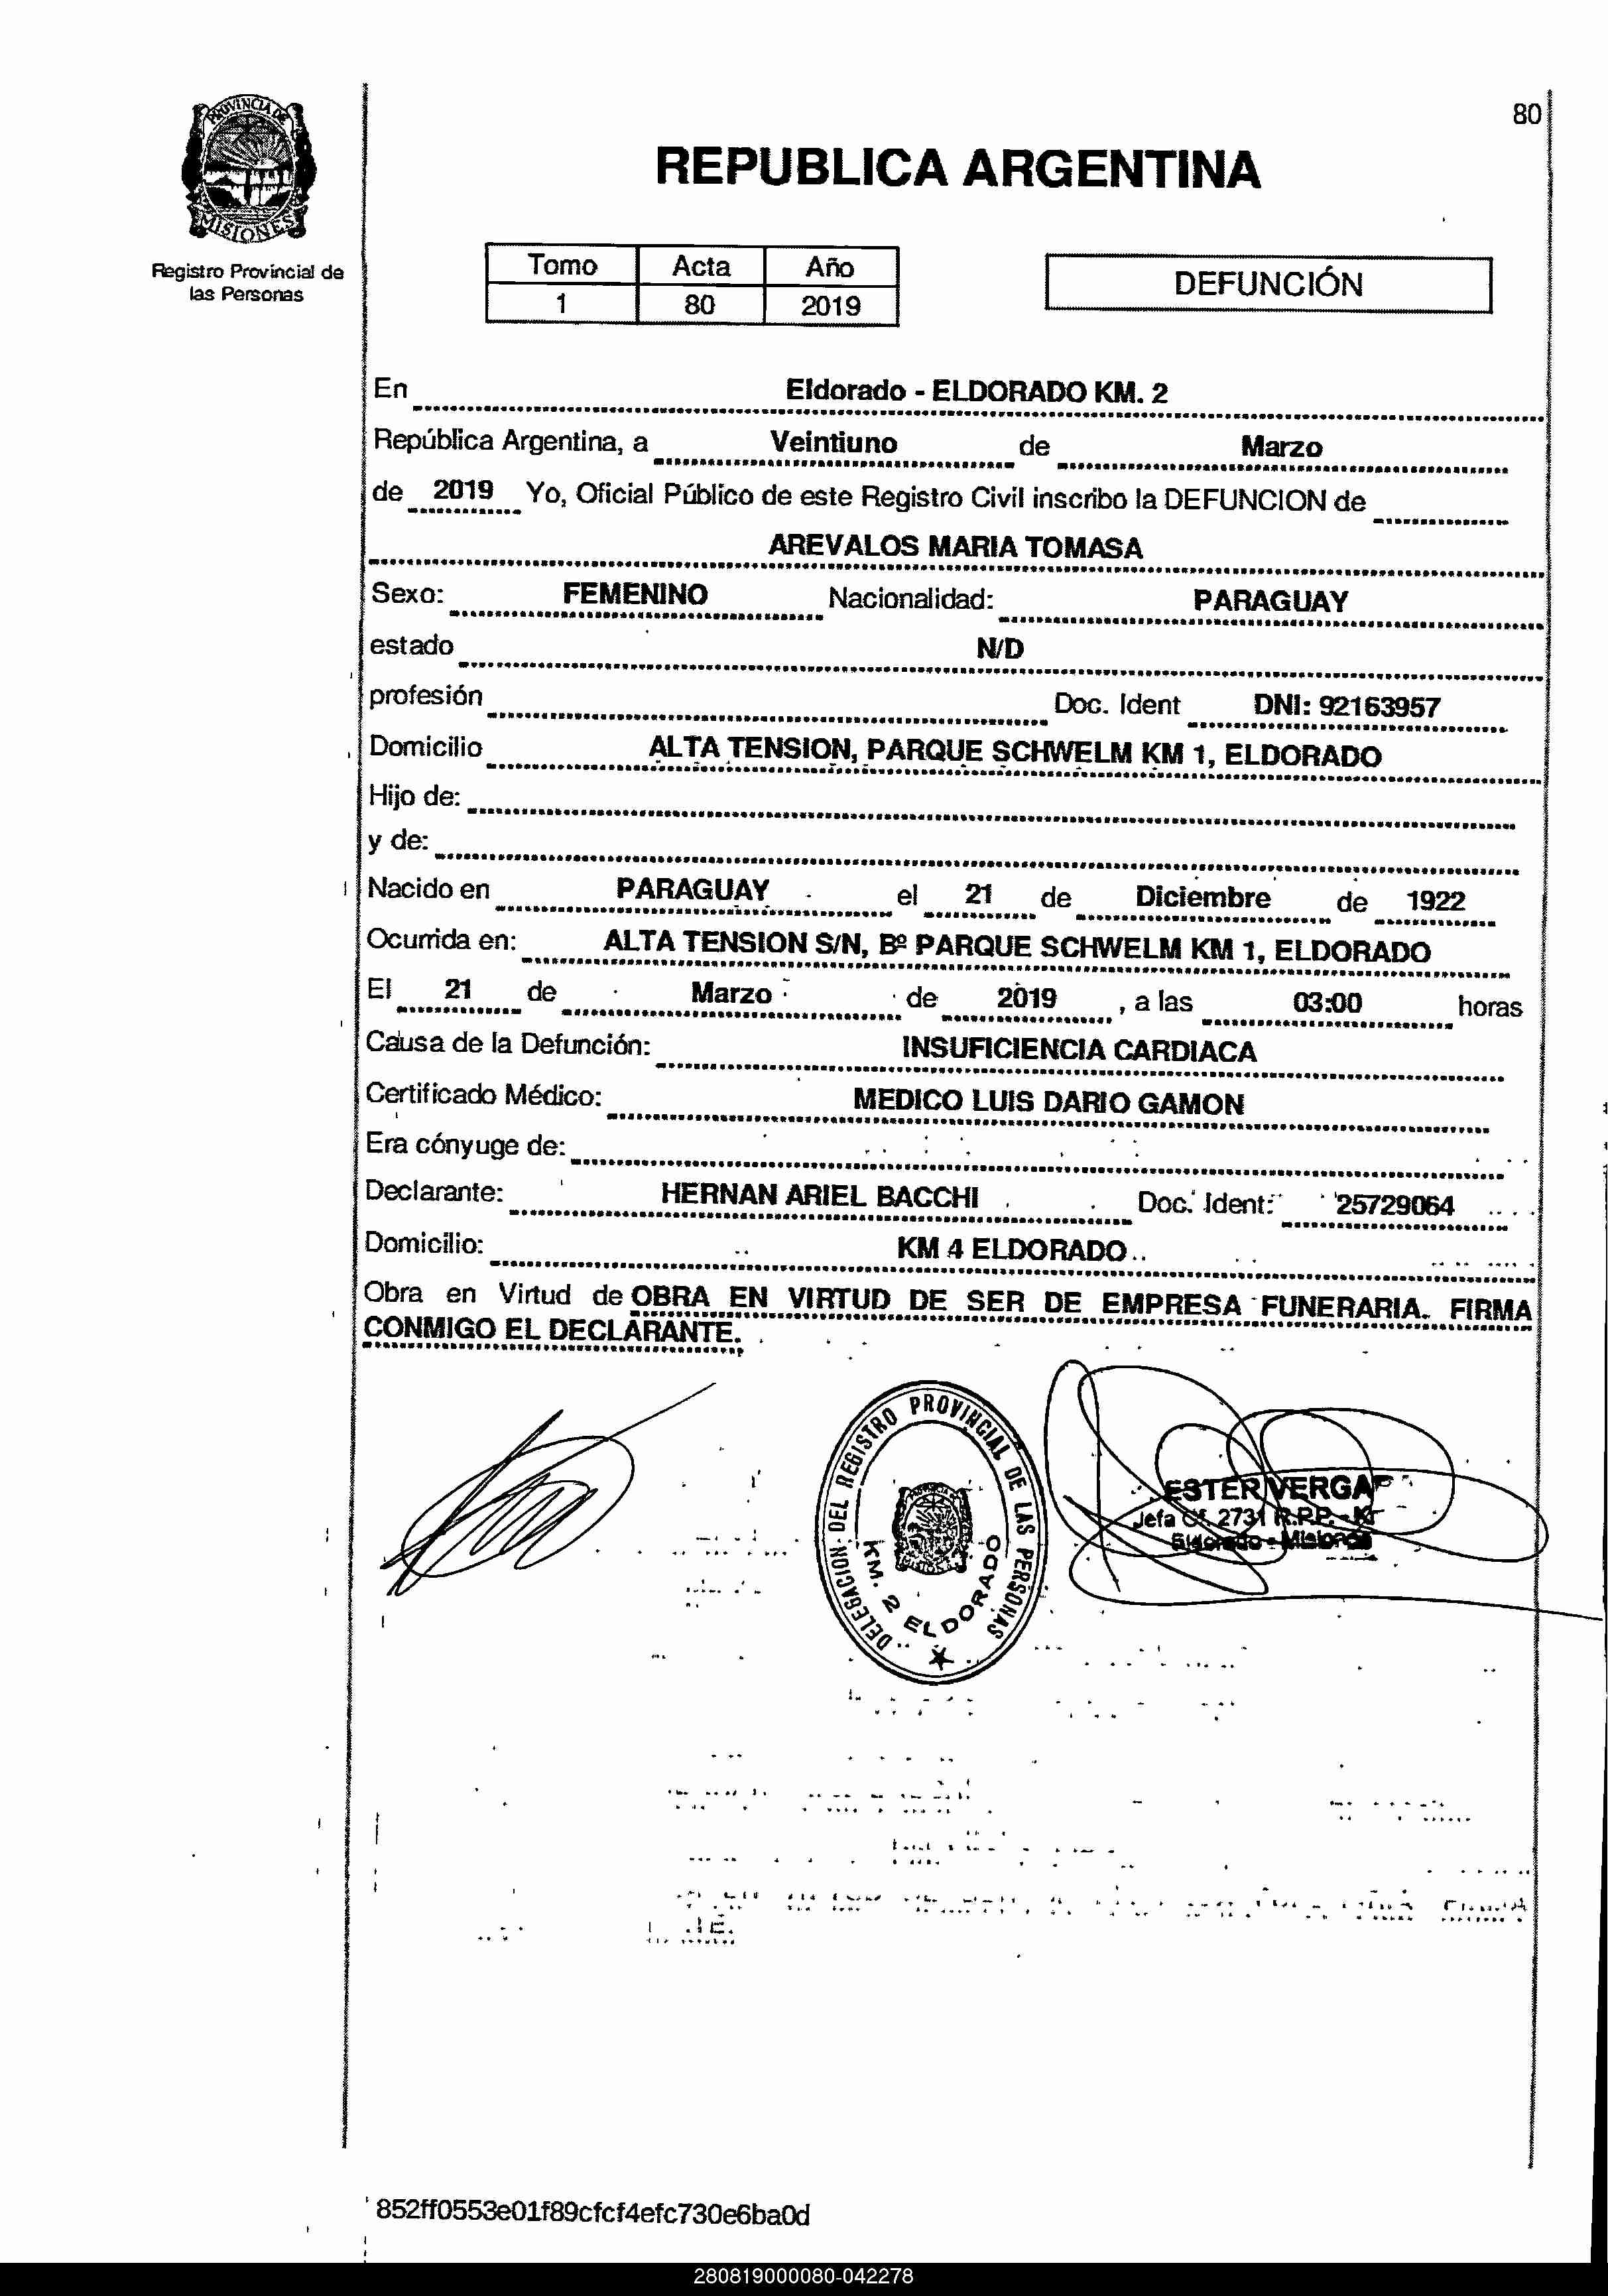 80
PROVINCIA DE
MISIONES
REPUBLICA ARGENTINA
Registro Provincial de
las Personas
Tomo Acta Año
1 80 2019
DEFUNCIÓN
En Eldorado - ELDORADO KM. 2
República Argentina, a Veintiuno de Marzo
de 2019 Yo, Oficial Público de este Registro Civil inscribo la DEFUNCION de
AREVALOS MARIA TOMASA
Sexo: FEMENINO Nacionalidad: PARAGUAY
estado N/D
profesión Doc. Ident DNI: 92163957
Domicilio ALTA TENSION, PARQUE SCHWELM KM 1, ELDORADO
Hijo de:
y de:
Nacido en PARAGUAY el 21 de Diciembre de 1922
Ocurrida en: ALTA TENSION S/N, Bº PARQUE SCHWELM KM 1, ELDORADO
El 21 de Marzo de 2019 , a las 03:00 horas
Causa de la Defunción: INSUFICIENCIA CARDIACA
Certificado Médico: MEDICO LUIS DARIO GAMON
Era cónyuge de:
Declarante: HERNAN ARIEL BACCHI Doc. Ident: 25729064
Domicilio: KM 4 ELDORADO
Obra en Virtud de OBRA EN VIRTUD DE SER DE EMPRESA FUNERARIA. FIRMA
CONMIGO EL DECLARANTE.
DELEGACION DEL REGISTRO PROVINCIAL DE LAS PERSONAS
KM. 2 ELDORADO
ESTER
Jefa Of. 2731 R.P.P. - K
Eldorado - Misiones
852ff0553e01f89cfcf4efc730e6ba0d
280819000080-042278